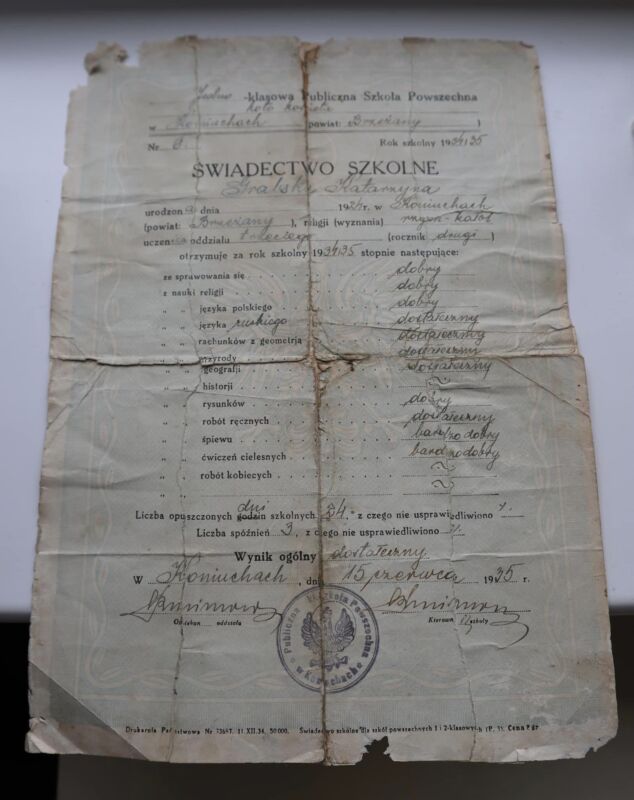 Jedno -klasowa Publiczna Szkoła Powszechna
w Koniuchach (powiat: Brzeżany )
Nr Rok szkolny 1934/35
ŚWIADECTWO SZKOLNE
Gralska Katarzyna
urodzona dnia 192 r. w Koniuchach
(powiat: Brzeżany ), religji (wyznania) rzym-katol
uczen oddziału trzeciego (rocznik drugi )
otrzymuje za rok szkolny 1934/35 stopnie następujące:
ze sprawowania się dobry
z nauki religji dobry
„ „ języka polskiego dobry
„ „ języka ruskiego dostateczny
„ „ rachunków z geometrją dostateczny
„ „ przyrody dostateczny
„ „ geografji dostateczny
„ „ historji
„ „ rysunków dobry
„ „ robót ręcznych dostateczny
„ „ śpiewu bardzo dobry
„ „ ćwiczeń cielesnych bardzo dobry
„ „ robót kobiecych
„ „
dni
Liczba opuszczonych godzin szkolnych 24, z czego nie usprawiedliwiono
Liczba spóźnień 3, z czego nie usprawiedliwiono
Wynik ogólny dostateczny
W Koniuchach, dnia 15 czerwca 1935 r.
Opiekun oddziału Kierown szkoły
Publiczna Szkoła Powszechna
w Koniuchach
Drukarnia Państwowa Nr 11.XII.34. 50.000. Świadectwo szkolne dla szkół powszechnych 1 i 2-klasowych Cena gr